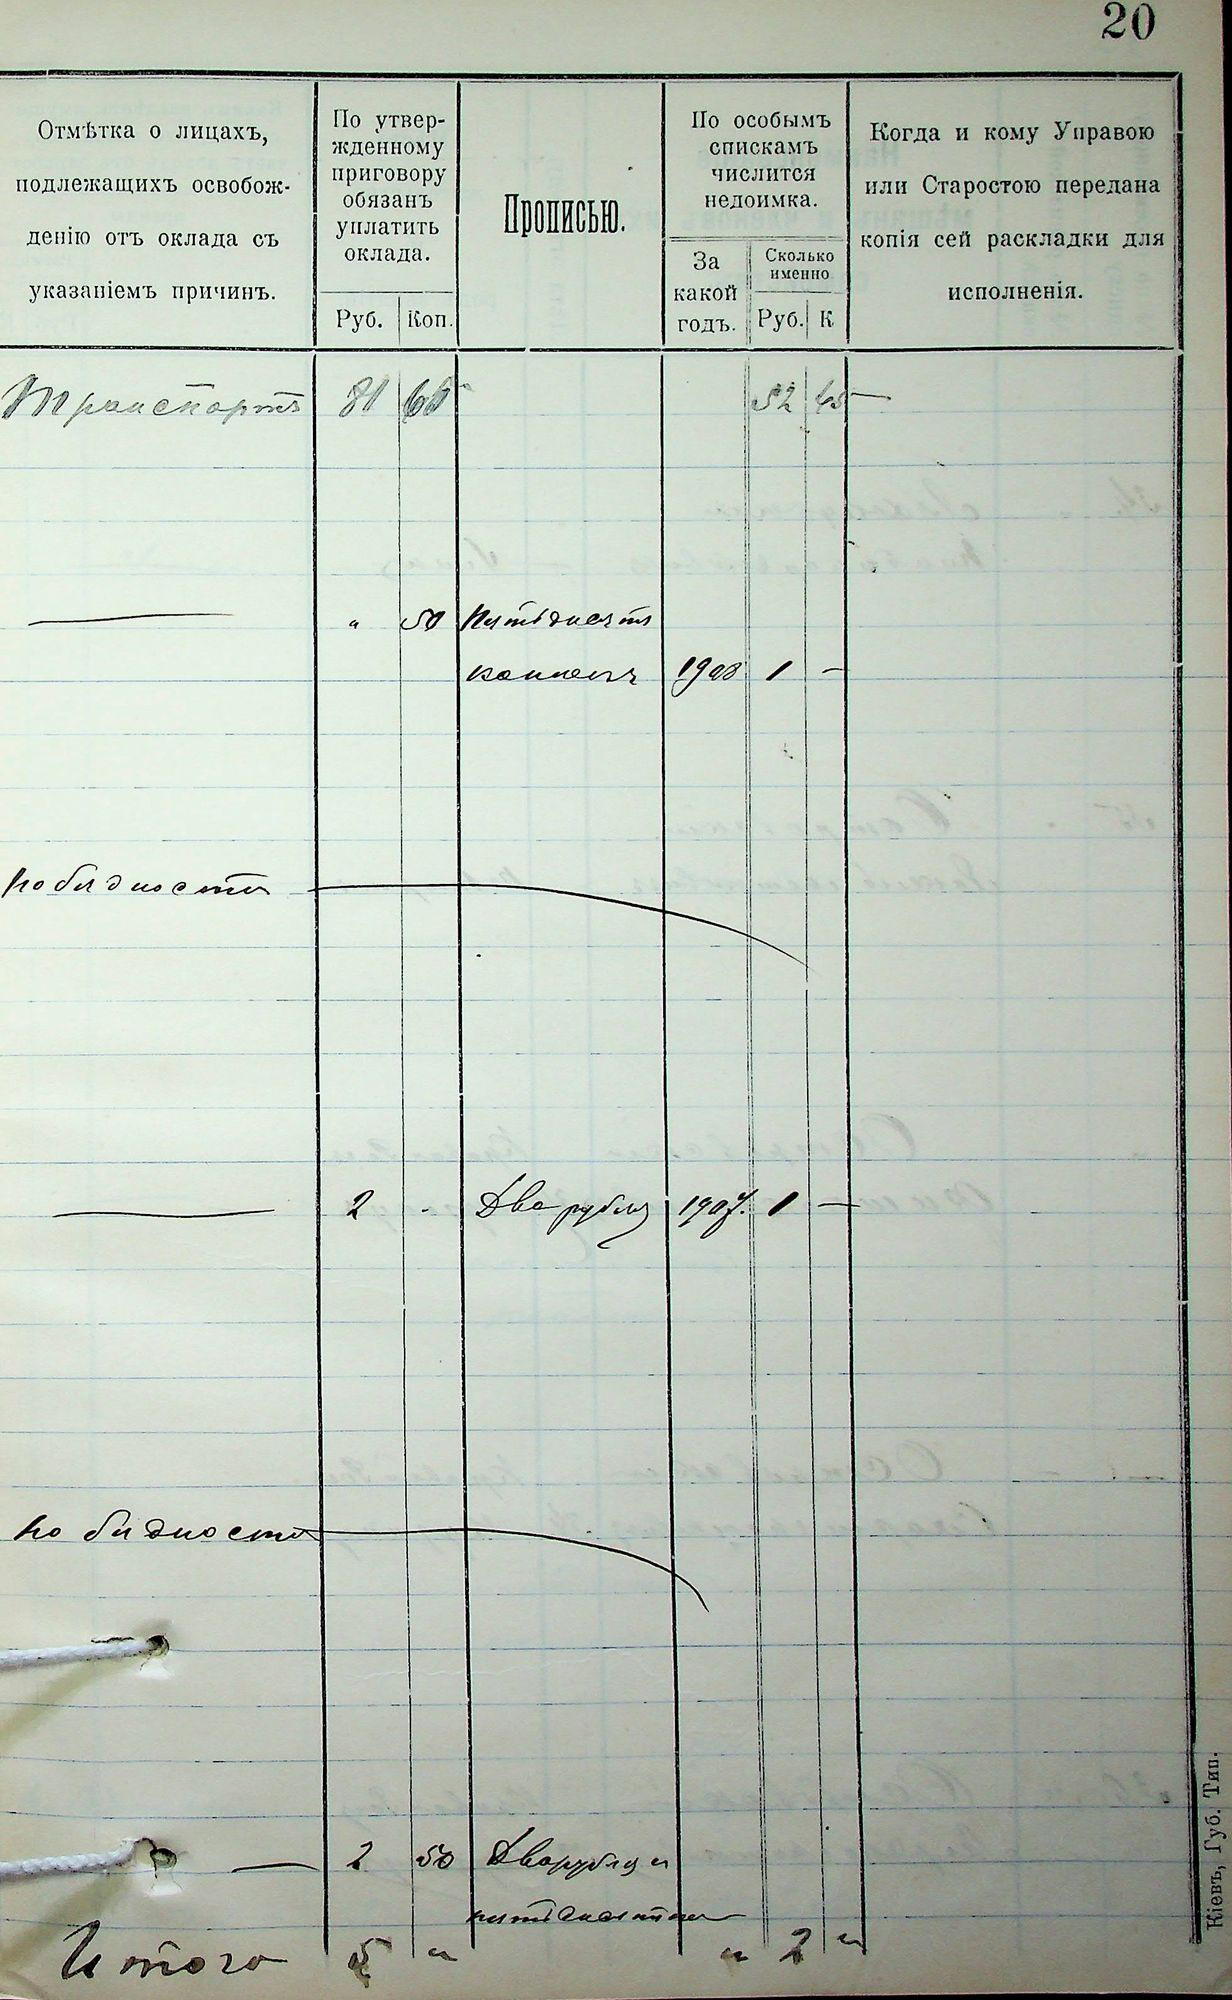 20
Отмѣтка о лицахъ,
подлежащихъ освобож-
денію отъ оклада съ
указаніемъ причинъ.
По утвер-
жденному
приговору
обязанъ
уплатить
оклада.
Руб.
Коп.
Прописью.
По особымъ
спискамъ
числится
недоимка.
За
какой
годъ.
Сколько
именно
Руб.
К
Когда и кому Управою
или Старостою передана
копія сей раскладки для
исполненія.
Транспортъ 81 65 52 45 —
— " 50 Пятьдесятъ
копѣекъ 1908 1 —
по бѣдности
— 2 - Два рубля 1907. 1 —
по бѣдности
— 2 50 Два рубля и
пятьдесятъ
Итого 5 " " 2 "
Кіевъ, Губ. Тип.